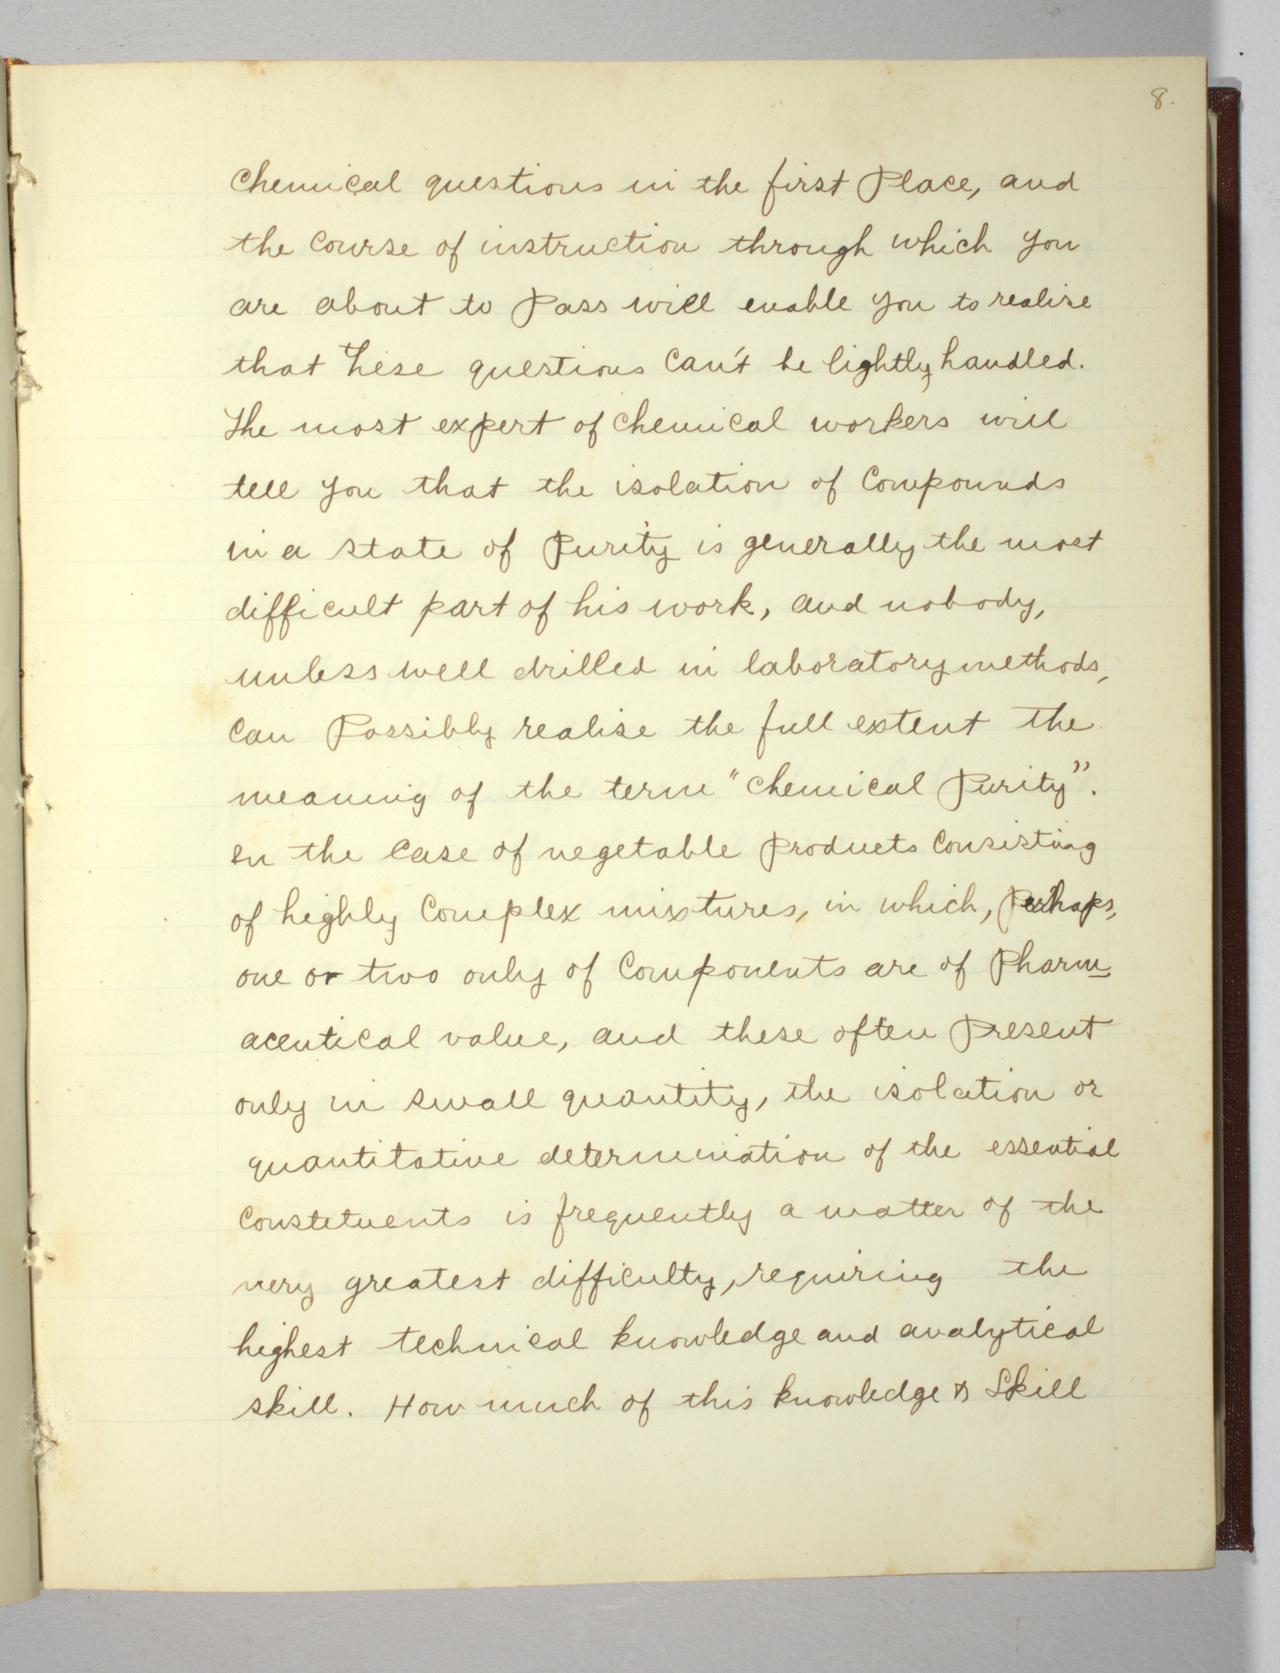 8.
Chemical questions in the first Place, and
the Course of instruction through which you
are about to Pass will enable you to realise
that these questions Can't be lightly handled.
The most expert of Chemical workers will
tell you that the isolation of Compounds
in a state of Purity is generally the most
difficult part of his work, and nobody,
unless well drilled in laboratory methods,
Can Possibly realise the full extent the
meaning of the term "Chemical Purity".
In the Case of vegetable Products Consisting
of highly Complex mixtures, in which, Perhaps,
one or two only of Components are of Pharm-
aceutical value, and these often Present
only in small quantity, the isolation or
quantitative determination of the essential
Constituents is frequently a matter of the
very greatest difficulty, requiring the
highest technical knowledge and analytical
skill. How much of this knowledge & Skill